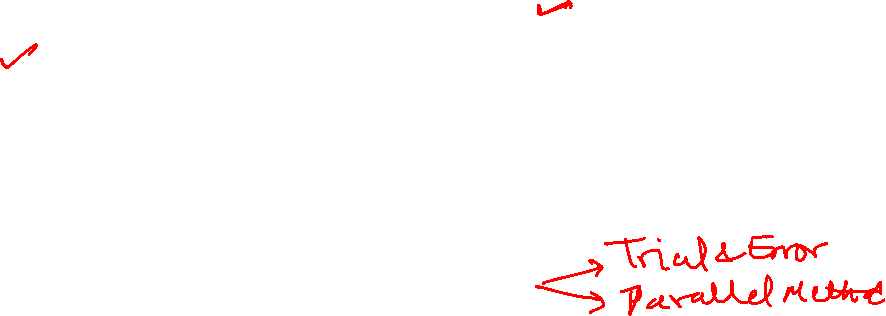 Trial & Error
Parallel Method